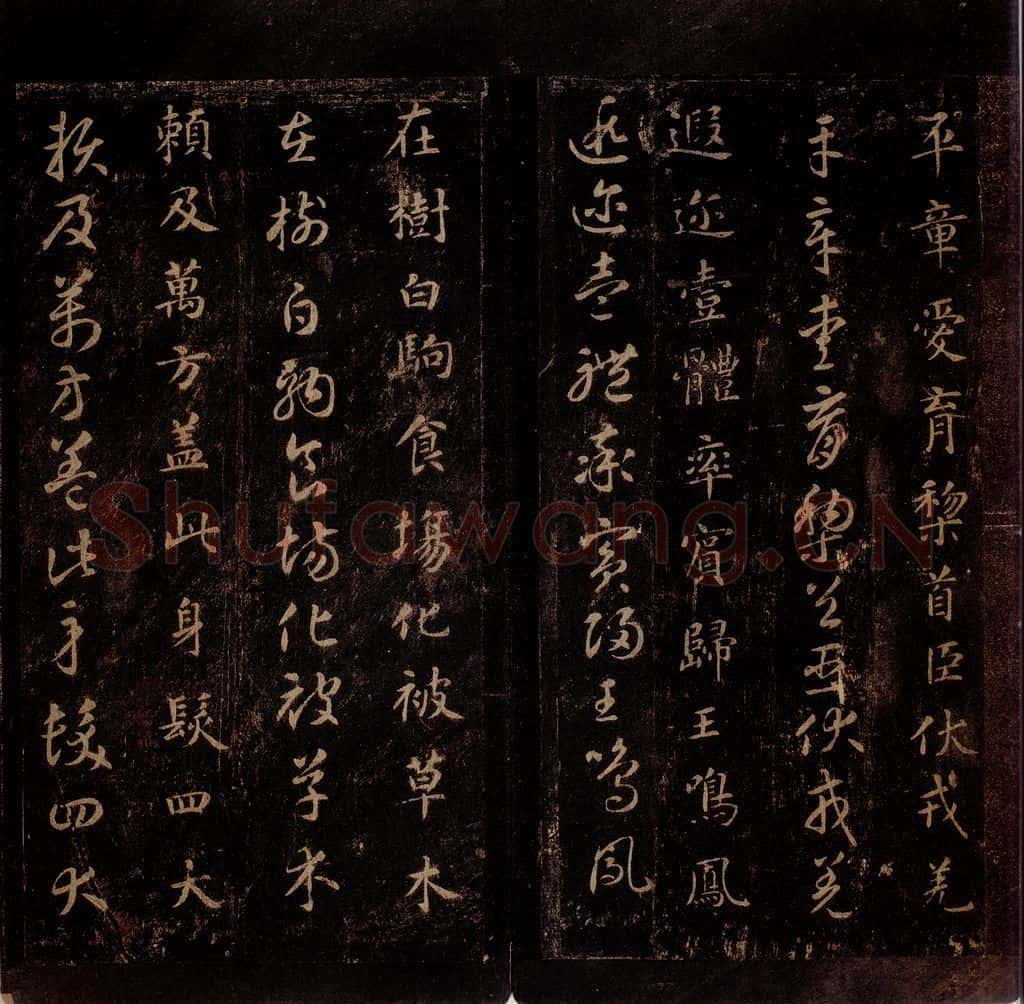 平章愛育黎首臣伏戎羌
平章愛育黎首臣伏戎羌
遐迩壹體率賓歸王鳴鳳
遐迩壹體率賓歸王鳴鳳
在樹白駒食場化被草木
在樹白駒食場化被草木
賴及萬方蓋此身髮四大
賴及萬方蓋此身髮四大
Shufawang.CN